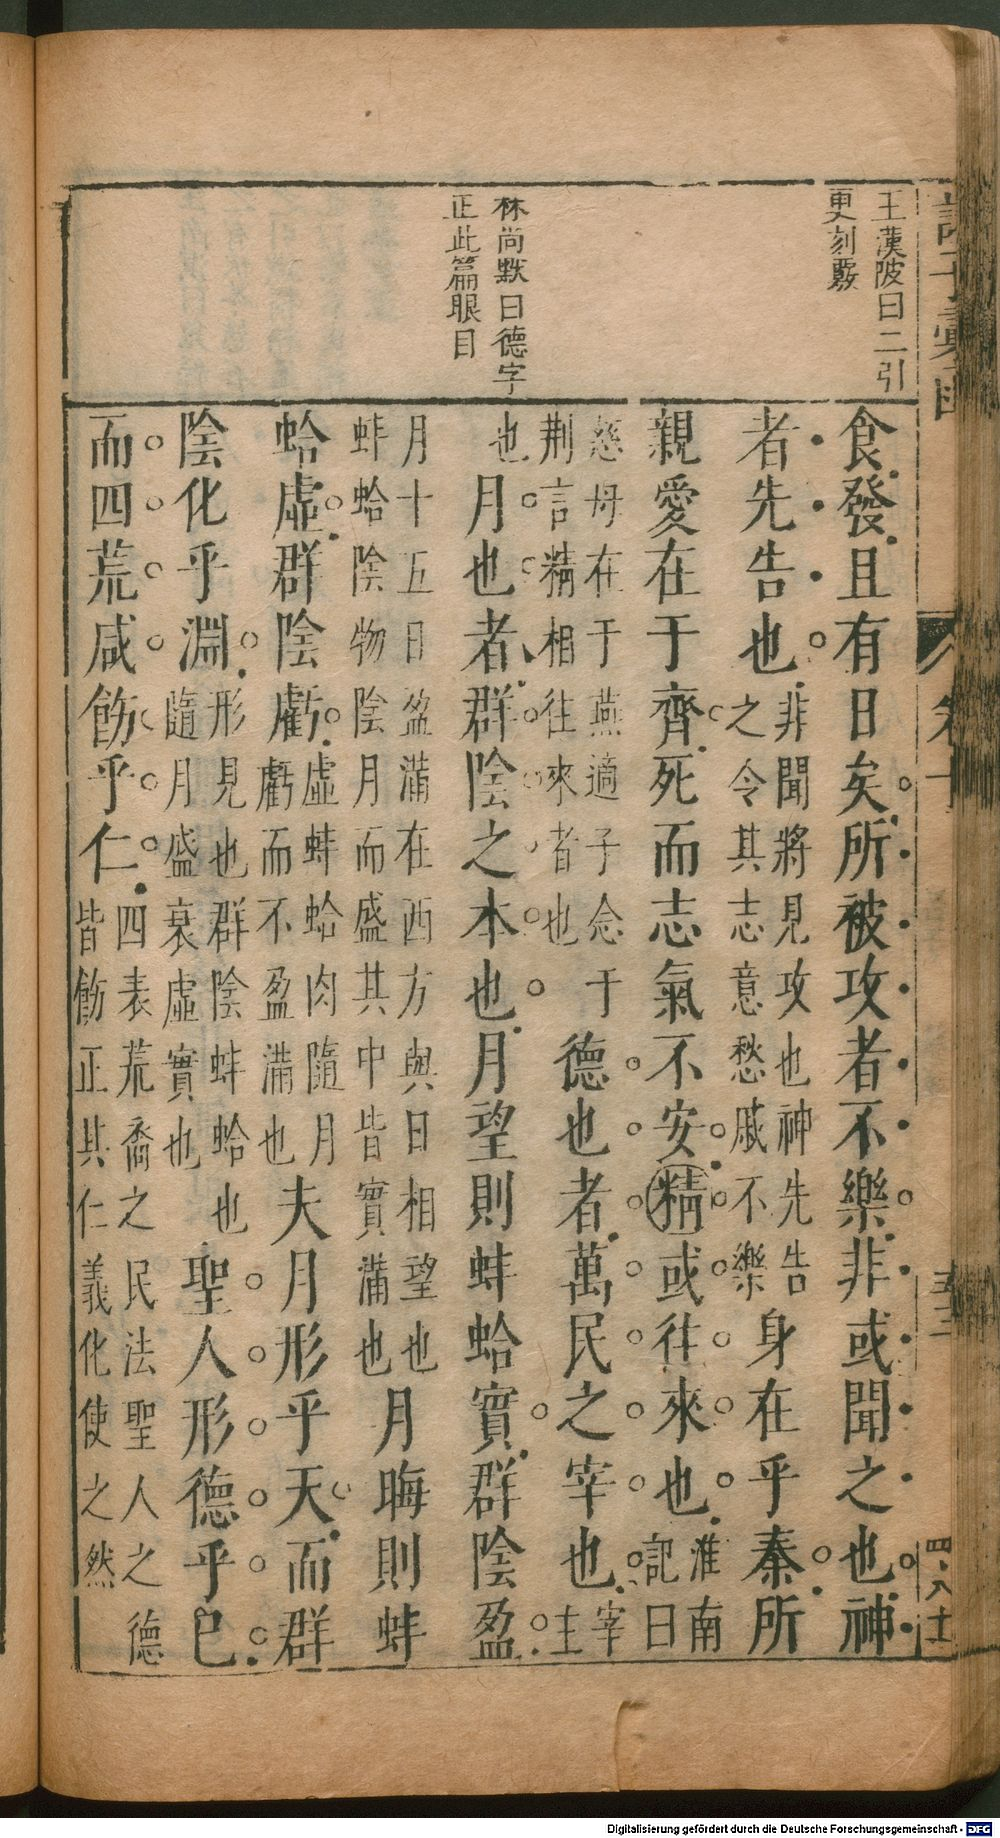 諸子彙函
卷十
王漢陂曰二引
更刻覈
林尚默曰德字
正此篇眼目
食發且有日矣所被攻者不樂非或聞之也神
者先告也
非聞將見攻也神先告
之令其志意愁戚不樂
身在乎秦所
親愛在于齊死而志氣不安精或往來也
淮南
記曰
慈母在于燕適子念于
荆言精相往來者也
德也者萬民之宰也
宰
主
也
月也者群陰之本也月望則蚌蛤實群陰盈
月十五日盈滿在西方與日相望也
蚌蛤陰物陰月而盛其中皆實滿也
月晦則蚌
蛤虛群陰虧
虛蚌蛤肉隨月
虧而不盈滿也
夫月形乎天而群
陰化乎淵
形見也群陰蚌蛤也
隨月盛衰虛實也
聖人形德乎巳
而四荒咸飭乎仁
四表荒裔之民法聖人之德
皆飭正其仁義化使之然
Digitalisierung gefördert durch die Deutsche Forschungsgemeinschaft - DFG